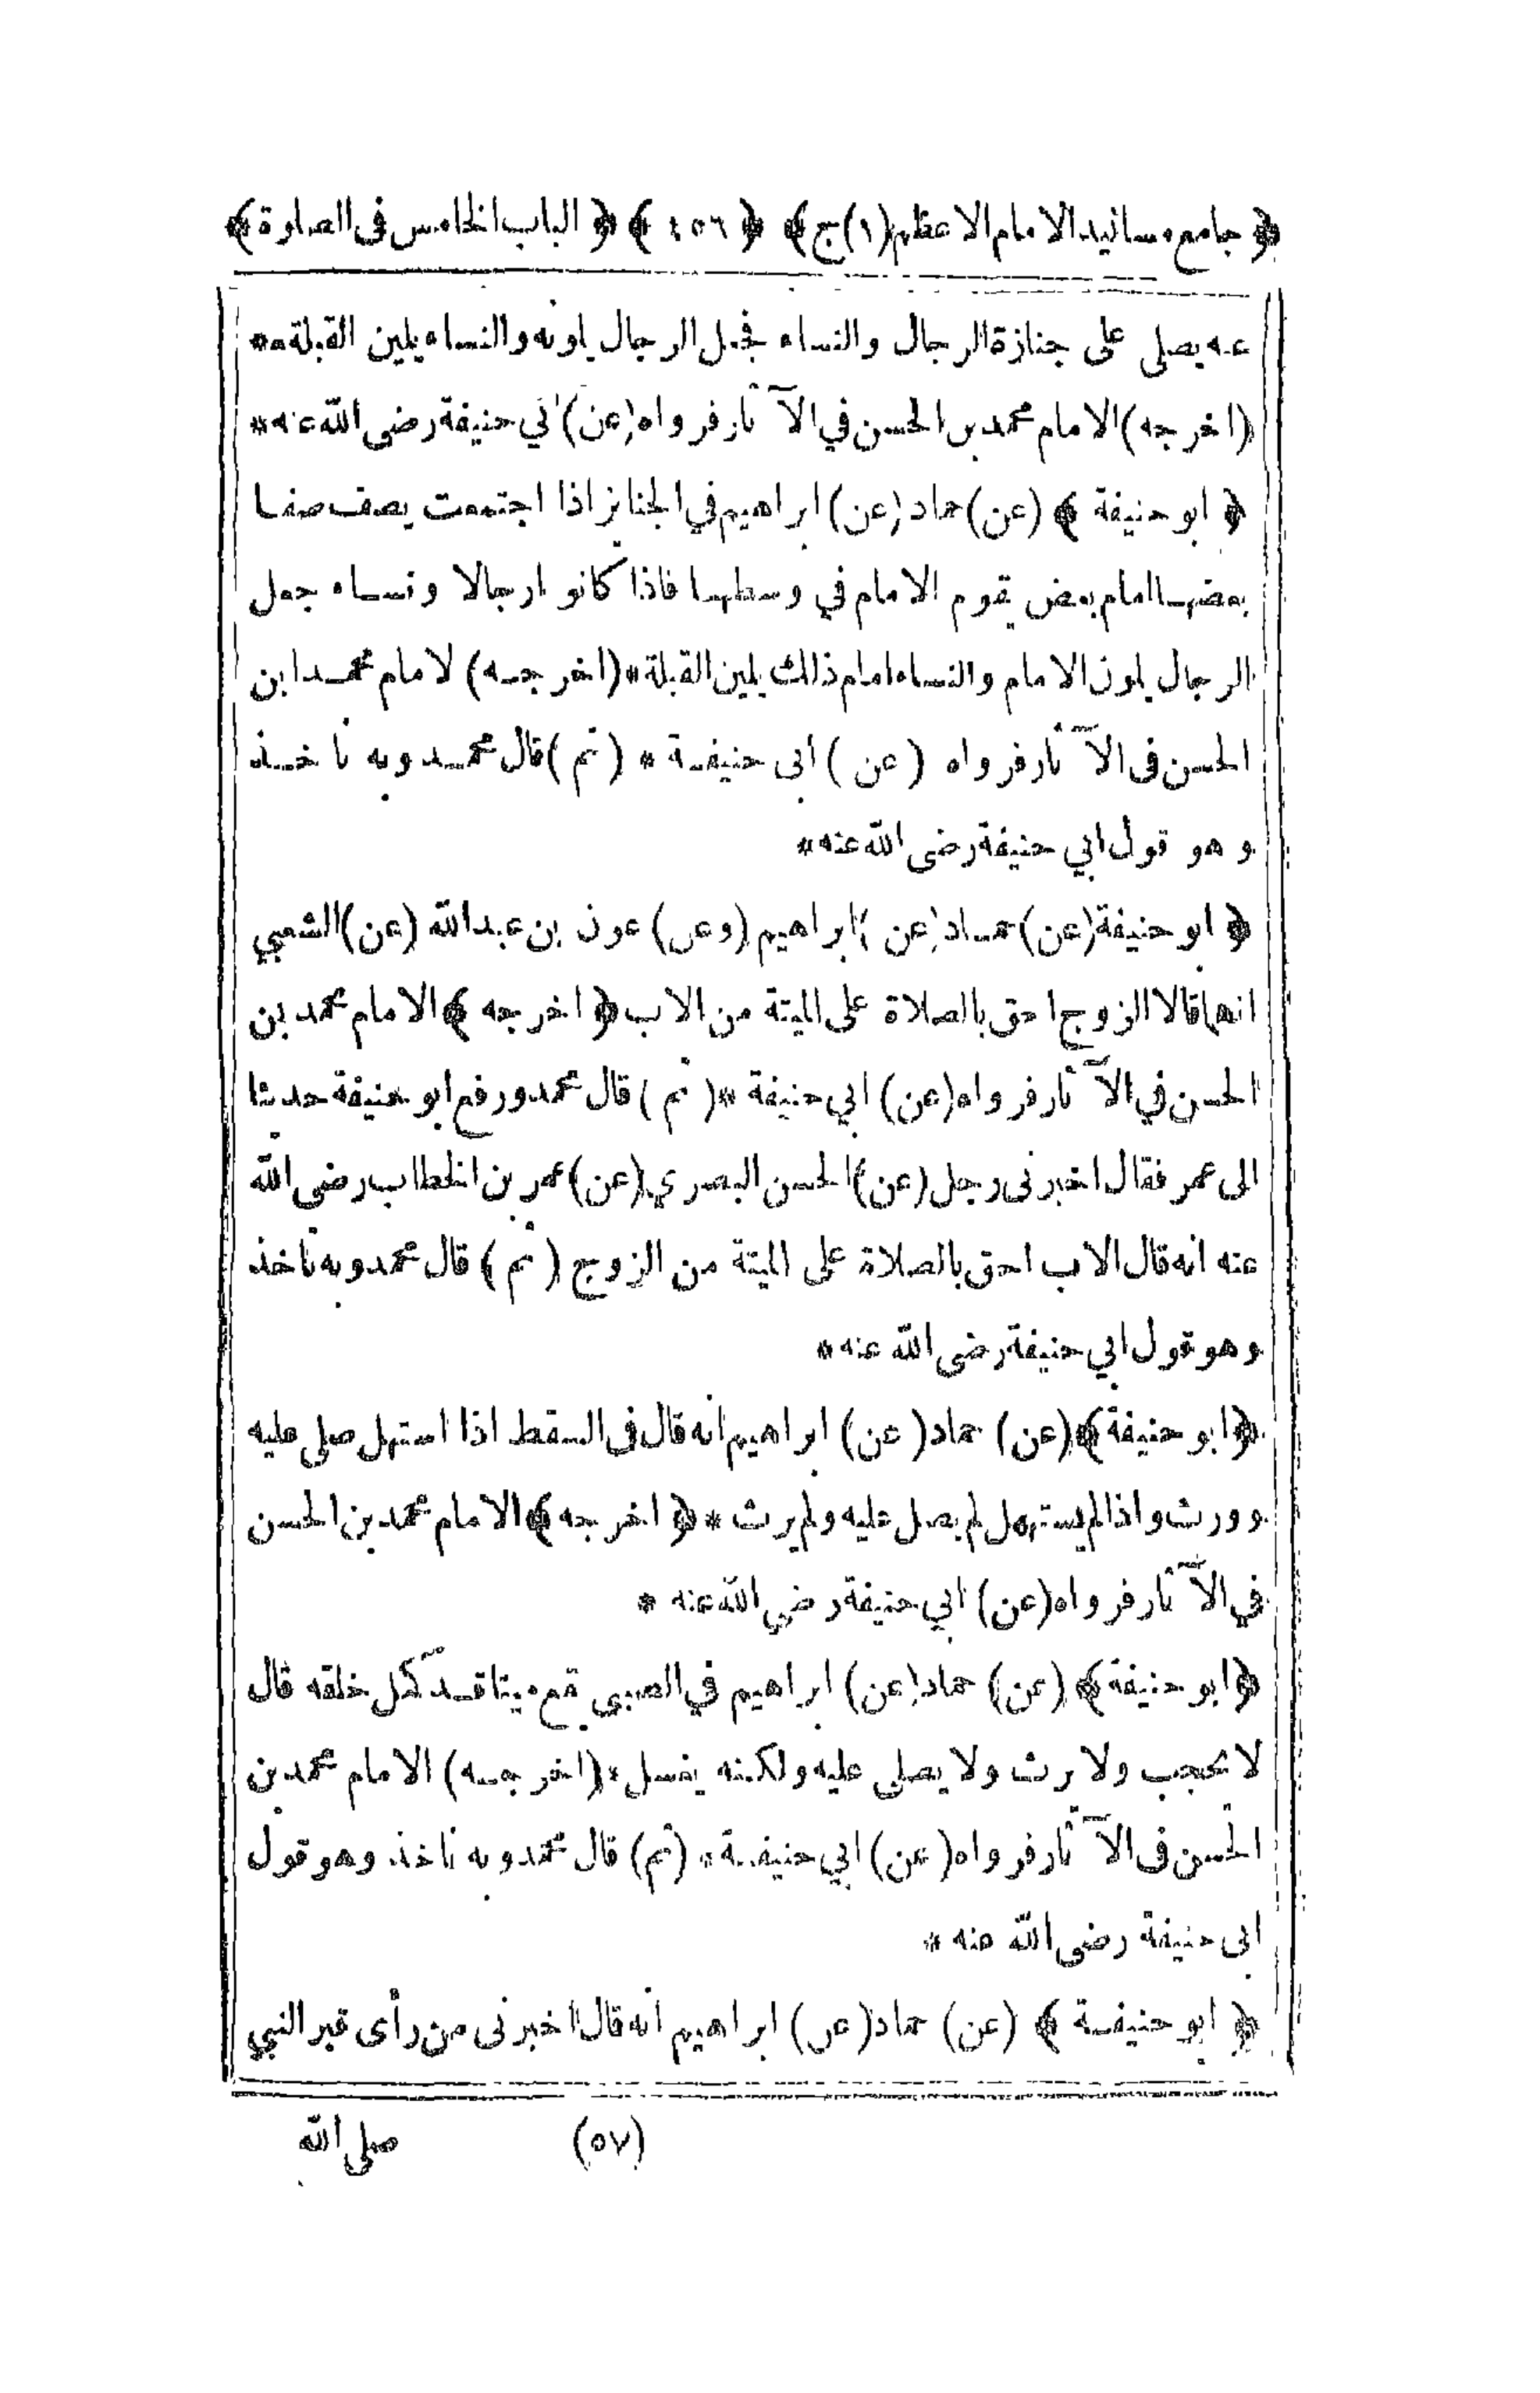 ﴿ جامع مسانيد الامام الاعظم (١) ج ﴾ ﴿ ٤٥٦ ﴾ ﴿ الباب الخامس فى الصلوة ﴾
عنه يصلى على جنازة الرجال والنساء فجعل الرجال يلونه والنساء يلين القبلة *
(اخرجه) الامام محمد بن الحسن في الآثار فرواه (عن) ابي حنيفة رضى الله عنه *
﴿ ابو حنيفة ﴾ (عن) حماد (عن) ابراهيم في الجنايز اذا اجتمعت يصف صفا
بعضها امام بعض يقوم الامام في وسطها فاذا كانوا رجالا ونساء جعل
الرجال يلون الامام والنساء امام ذلك يلين القبلة * (اخرجه) لامام محمد ابن
الحسن فى الآثار فرواه (عن) ابى حنيفة * (ثم) قال محمد وبه ناخذ
وهو قول ابي حنيفة رضى الله عنه *
﴿ ابو حنيفة (عن) حماد (عن) ابراهيم (وعن) عون بن عبدالله (عن) الشعبي
انهما قالا الزوج احق بالصلاة على الميتة من الاب ﴿ اخرجه ﴾ الامام محمد بن
الحسن في الآثار فرواه (عن) ابي حنيفة * (ثم) قال محمد ورفع ابو حنيفة حديثا
الى عمر فقال اخبرنى رجل (عن) الحسن البصري (عن) عمر بن الخطاب رضى الله
عنه انه قال الاب احق بالصلاة على الميتة من الزوج (ثم) قال محمد وبه ناخذ
وهو قول ابي حنيفة رضى الله عنه *
﴿ ابو حنيفة ﴾ (عن) حماد (عن) ابراهيم انه قال فى السقط اذا استهل صلى عليه
وورث واذا لم يستهل لم يصل عليه ولم يرث * ﴿ اخرجه ﴾ الامام محمد بن الحسن
في الآثار فرواه (عن) ابي حنيفة رضى الله عنه *
﴿ ابو حنيفة ﴾ (عن) حماد (عن) ابراهيم في الصبي يقع ميتا قد كمل خلقه قال
لا يحجب ولا يرث ولا يصلى عليه ولكنه يغسل * (اخرجه) الامام محمد بن
الحسن فى الآثار فرواه (عن) ابي حنيفة * (ثم) قال محمد وبه ناخذ وهو قول
ابى حنيفة رضى الله عنه *
﴿ ابو حنيفة ﴾ (عن) حماد (عن) ابراهيم انه قال اخبرنى من رأى قبر النبي
(٥٧) صلى الله